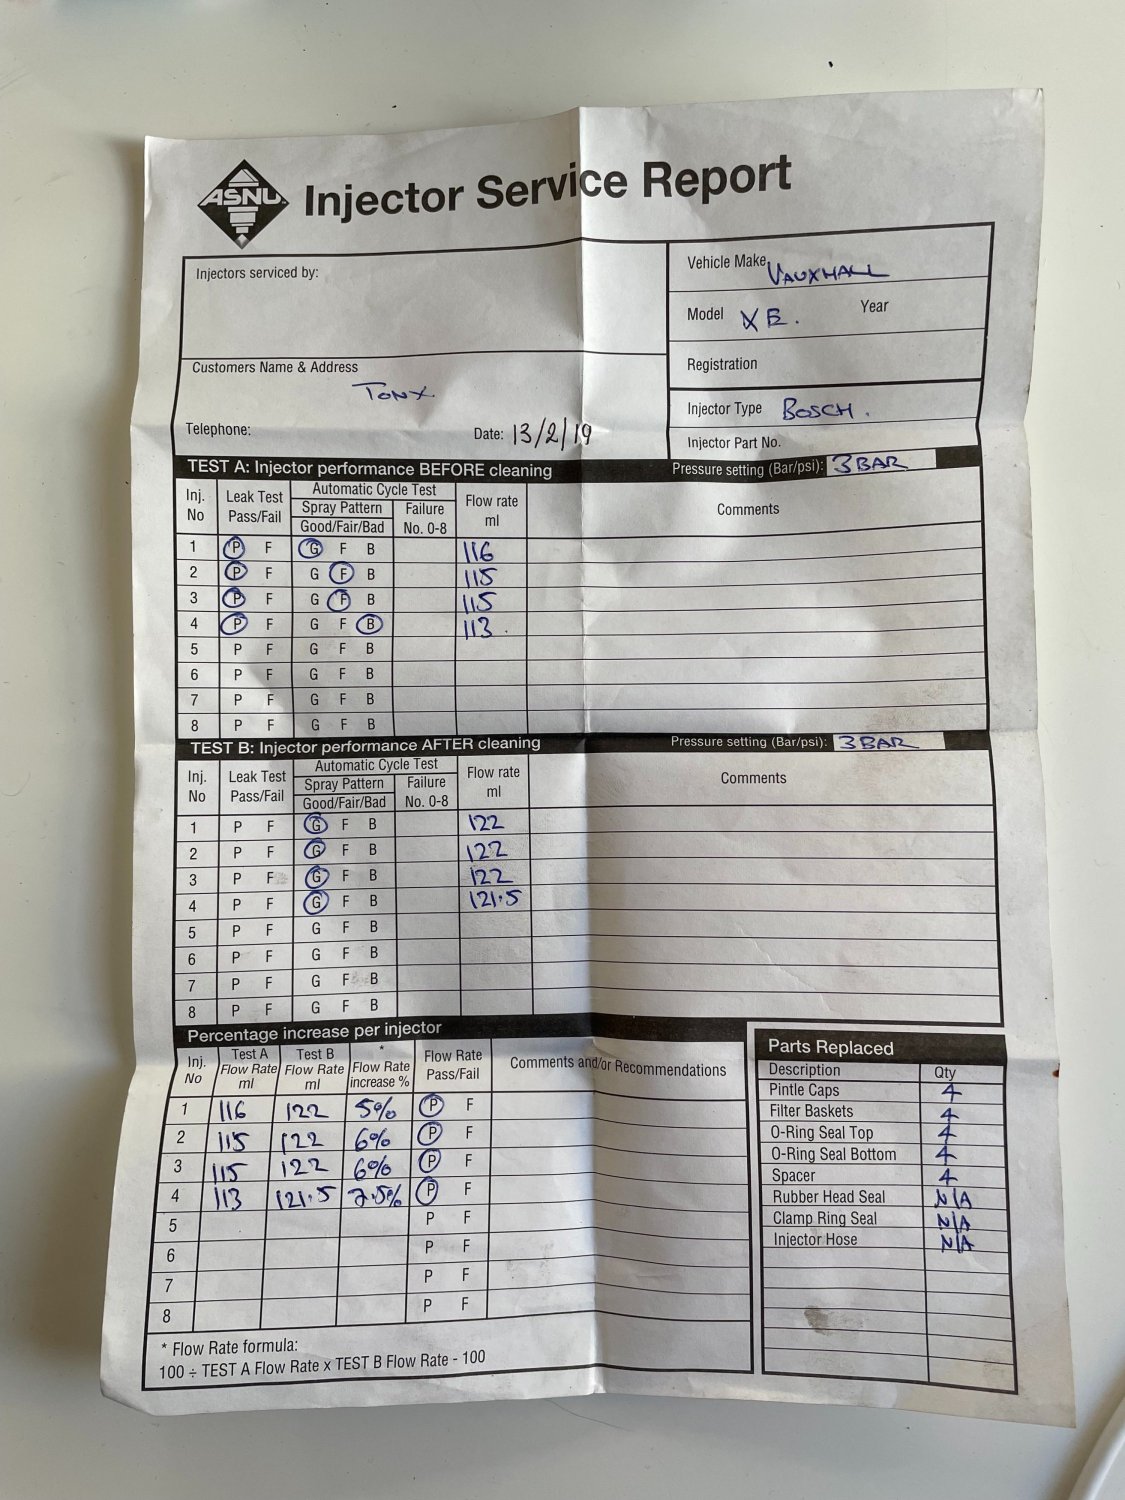 ASNU
Injector Service Report
Injectors serviced by:
Vehicle Make VAUXHALL
Model XE. Year
Registration
Customers Name & Address
TONY
Injector Type BOSCH.
Telephone: Date: 13/2/19
Injector Part No.
TEST A: Injector performance BEFORE cleaning Pressure setting (Bar/psi): 3 BAR
Inj. No Leak Test Pass/Fail Automatic Cycle Test Spray Pattern Good/Fair/Bad Failure No. 0-8 Flow rate ml Comments
1 P F G F B 116
2 P F G F B 115
3 P F G F B 115
4 P F G F B 113
5 P F G F B
6 P F G F B
7 P F G F B
8 P F G F B
TEST B: Injector performance AFTER cleaning Pressure setting (Bar/psi): 3 BAR
Inj. No Leak Test Pass/Fail Automatic Cycle Test Spray Pattern Good/Fair/Bad Failure No. 0-8 Flow rate ml Comments
1 P F G F B 122
2 P F G F B 122
3 P F G F B 122
4 P F G F B 121.5
5 P F G F B
6 P F G F B
7 P F G F B
8 P F G F B
Percentage increase per injector
Inj. No Test A Flow Rate ml Test B Flow Rate ml * Flow Rate increase % Flow Rate Pass/Fail Comments and/or Recommendations
1 116 122 5% P F
2 115 122 6% P F
3 115 122 6% P F
4 113 121.5 7.5% P F
5 P F
6 P F
7 P F
8 P F
* Flow Rate formula:
100 ÷ TEST A Flow Rate x TEST B Flow Rate - 100
Parts Replaced
Description Qty
Pintle Caps 4
Filter Baskets 4
O-Ring Seal Top 4
O-Ring Seal Bottom 4
Spacer 4
Rubber Head Seal N/A
Clamp Ring Seal N/A
Injector Hose N/A